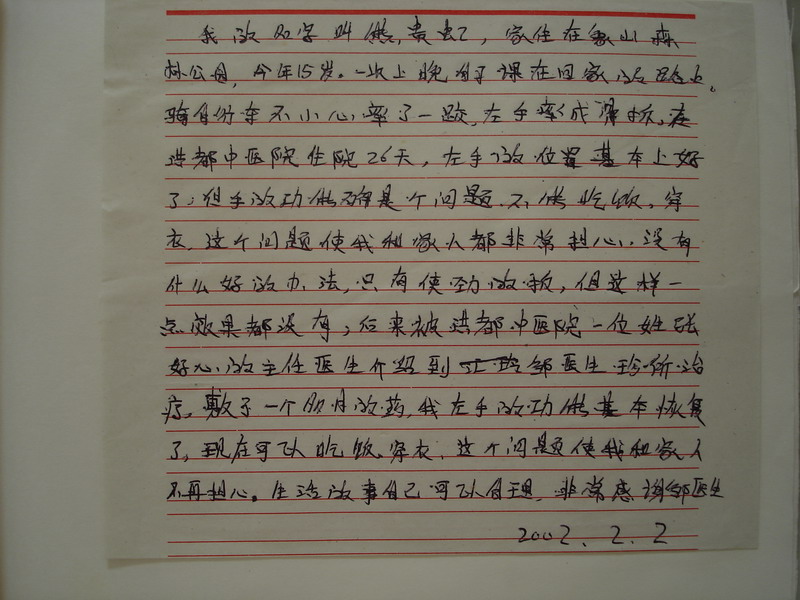 我的名字叫熊贵虹,家住在象山森
林公园,今年15岁。一次上晚自习课在回家的路上。
骑自行车不小心摔了一跤,左手摔成骨折,在
洪都中医院住院26天,左手的位置基本上好
了;但手的功能确是个问题.不能吃饭、穿
衣.这个问题使我和家人都非常担心,没有
什么好的办法,只有使劲的扳,但这样一
点效果都没有;后来被洪都中医院一位姓张
好心的主任医生介绍到 邹医生珍所治
疗,敷了一个月的药,我左手的功能基本恢复
了,现在可以吃饭、穿衣.这个问题使我和家人
不再担心。生活的事自己可以自理.非常感谢邹医生
2002.2.2